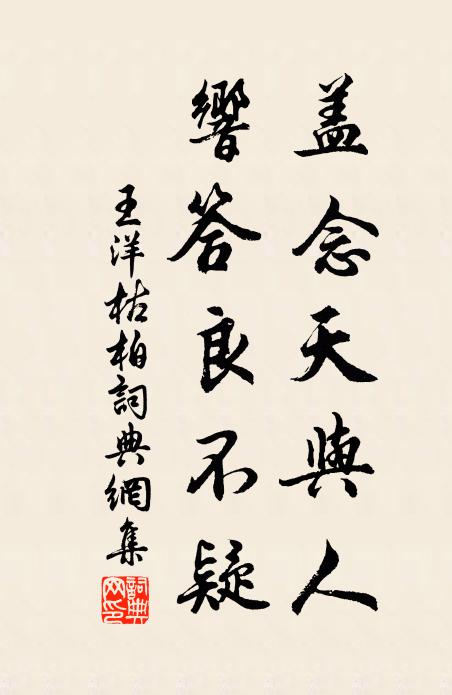 盖念天與人
響答良不疑
王洋枯柏詞典網集
詞典网印